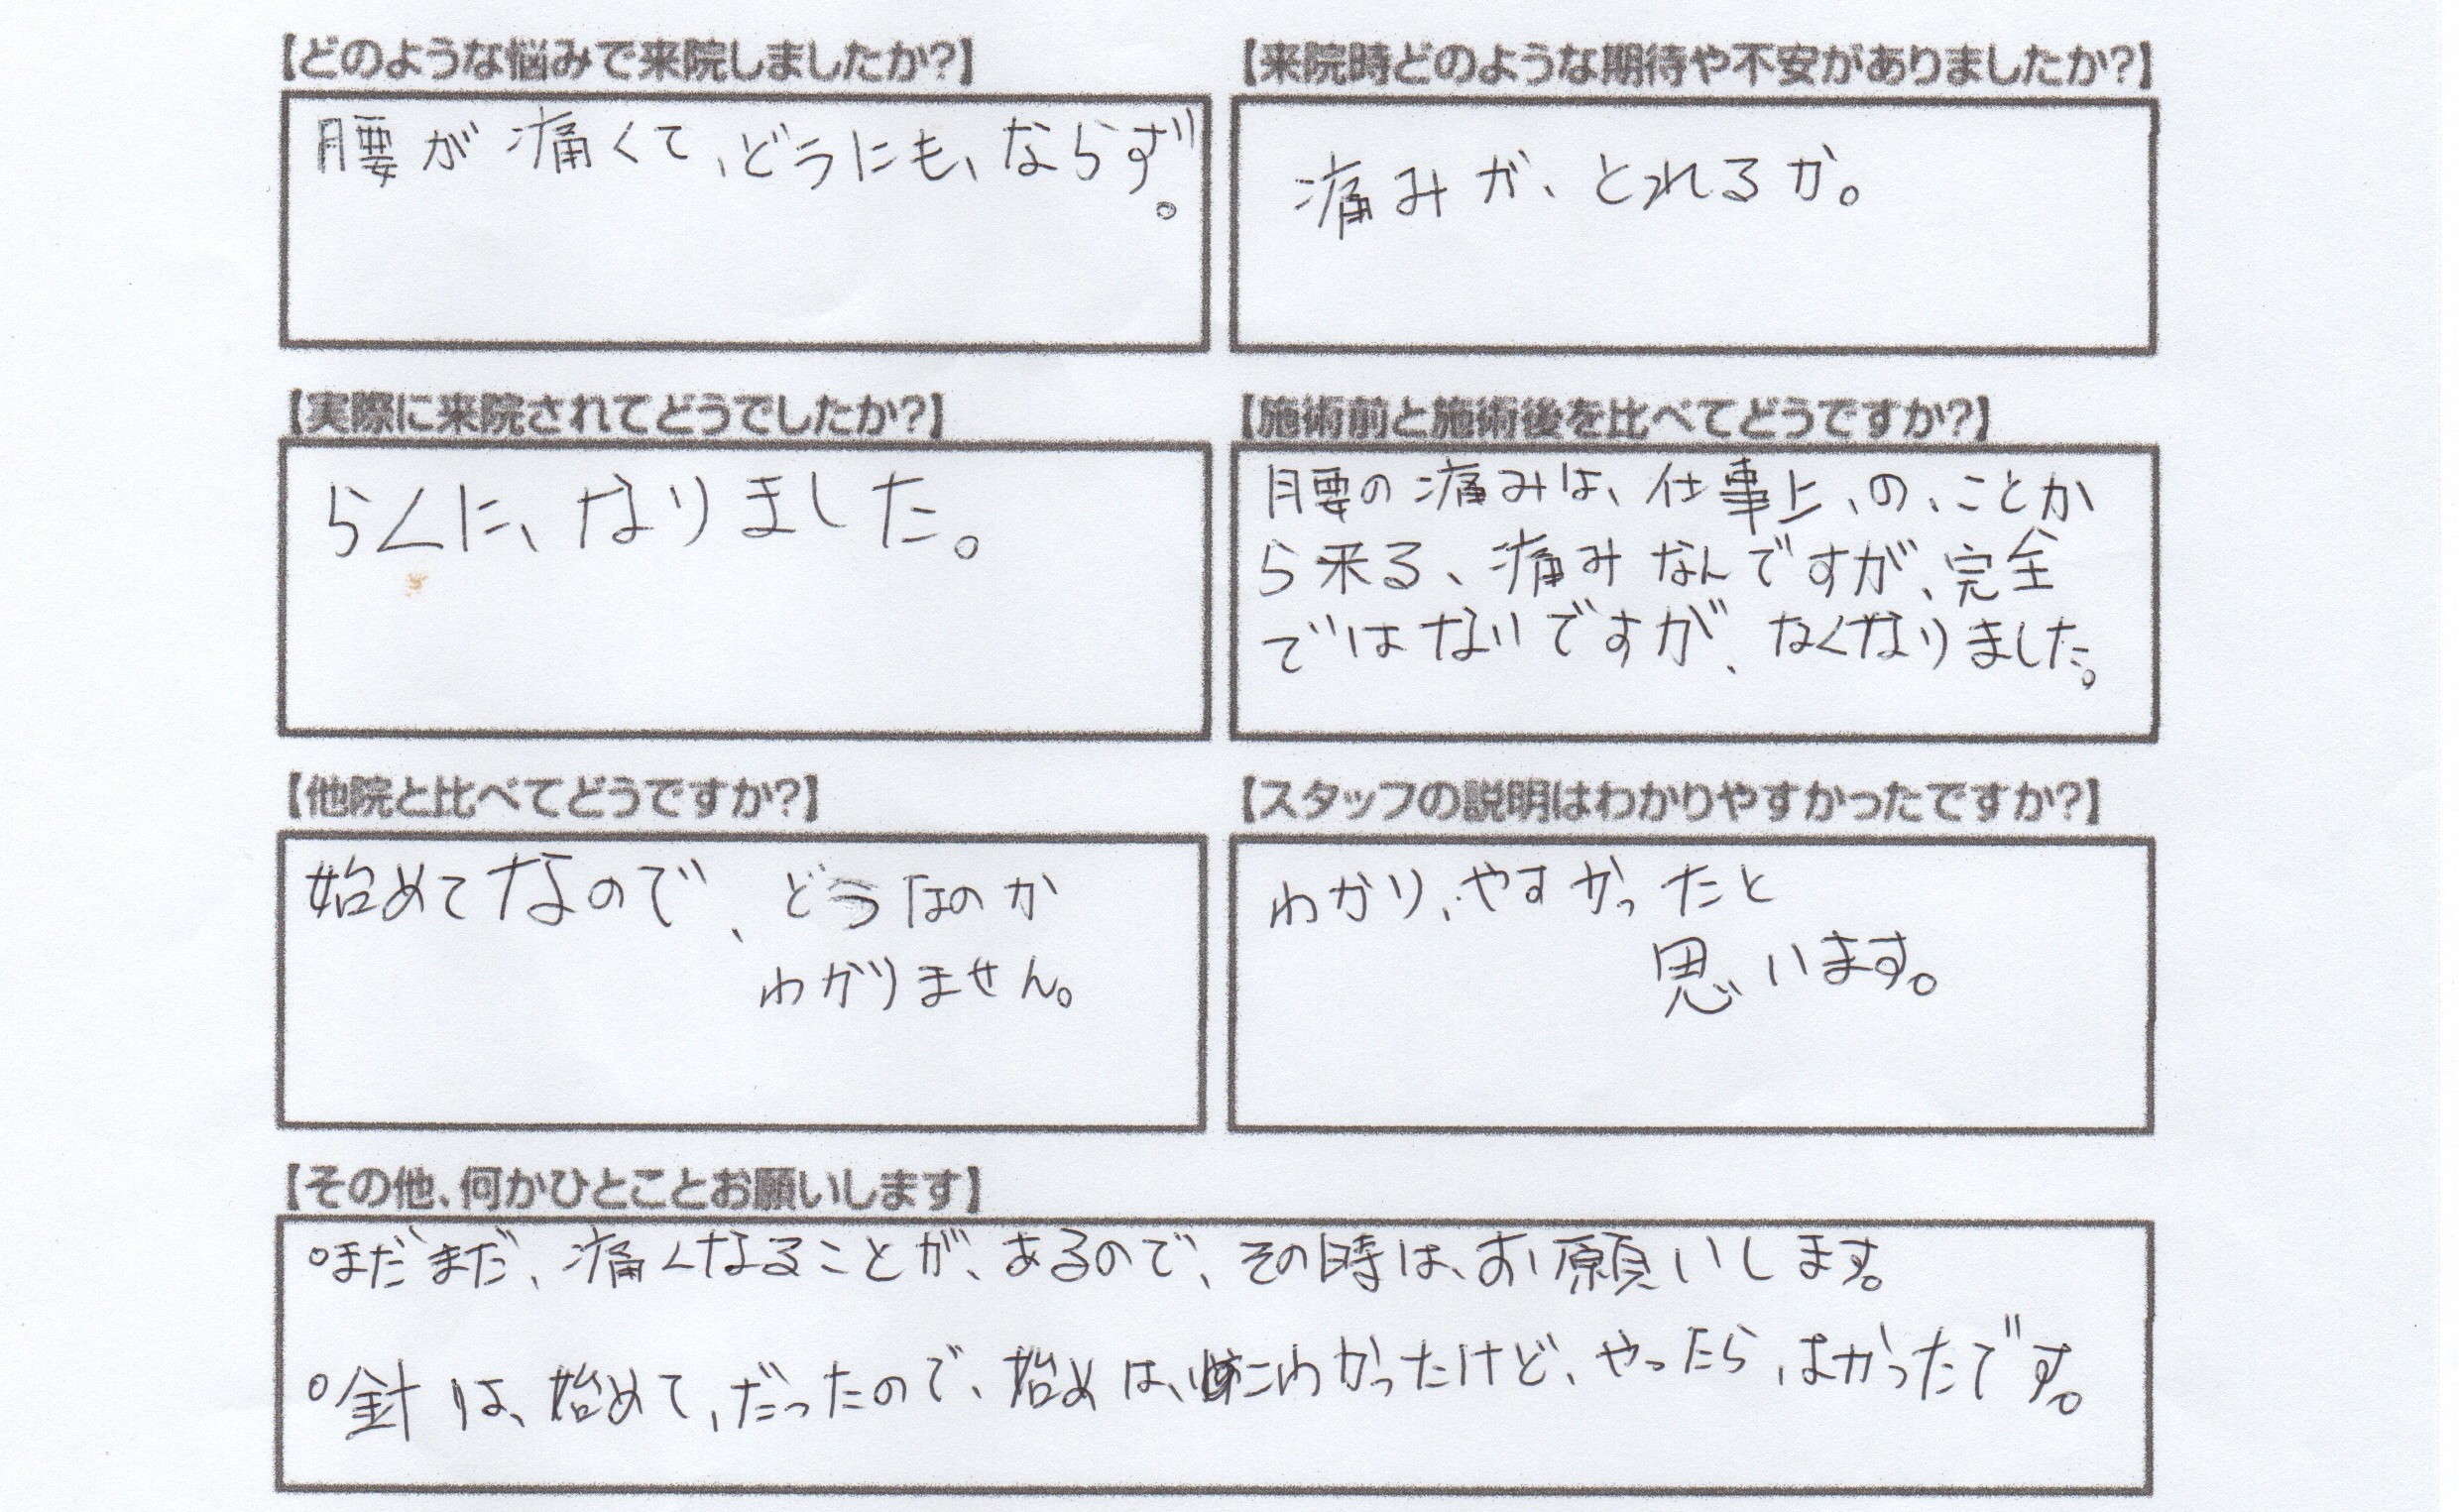 【どのような悩みで来院しましたか?】
腰が痛くて、どうにも、ならず。
【来院時どのような期待や不安がありましたか?】
痛みが、とれるか。
【実際に来院されてどうでしたか?】
らくに、なりました。
【施術前と施術後を比べてどうですか?】
腰の痛みは、仕事上、の、ことか
ら来る、痛みなんですが、完全
ではないですが、なくなりました。
【他院と比べてどうですか?】
始めてなので、どうなのか
わかりません。
【スタッフの説明はわかりやすかったですか?】
わかり、やすかったと
思います。
【その他、何かひとことお願いします】
○まだまだ、痛くなることが、あるので、その時は、お願いします。
○針は、始めて、だったので、始めは、こわかったけど、やったら、よかったです。